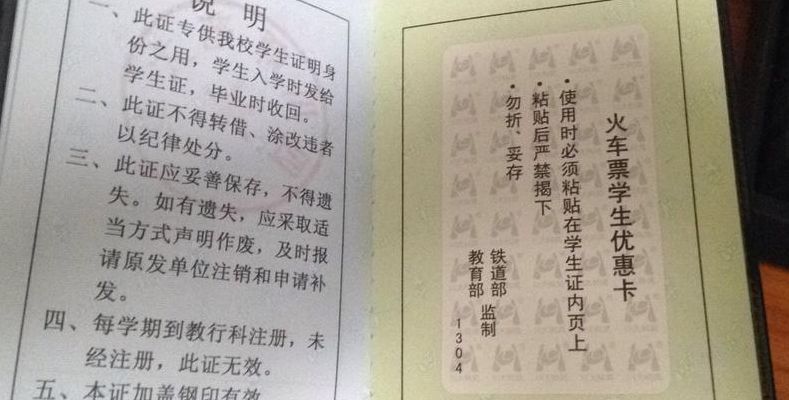 说 明
一、此证专供我校学生证明身
份之用，学生入学时发给
学生证，毕业时收回。
二、此证不得转借、涂改违者
以纪律处分。
三、此证应妥善保存，不得遗
失。如有遗失，应采取适
当方式声明作废，及时报
请原发单位注销和申请补
发。
四、每学期到教行科注册，未
经注册，此证无效。
五、本证加盖钢印有效
火车票学生优惠卡
·使用时必须粘贴在学生证内页上
·粘贴后严禁揭下
·勿折、妥存
铁道部
教育部
监制
1304